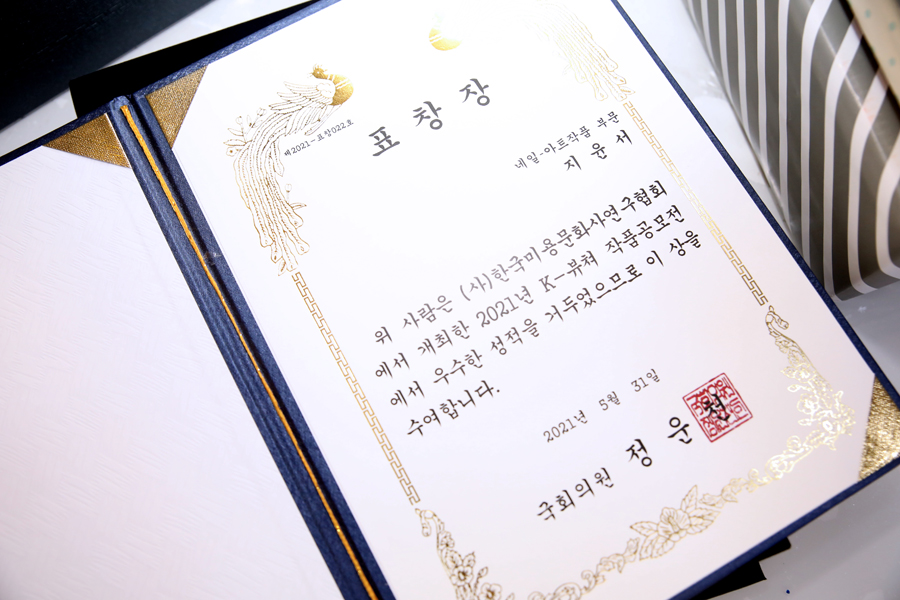 제2021-표창022호
표창장
네일-아트작품 부문
지윤서
위 사람은 (사)한국미용문화사연구협회
에서 개최한 2021년 K-뷰쳐 작품공모전
에서 우수한 성적을 거두었으므로 이 상을
수여합니다.
2021년 5월 31일
국회의원 정운천